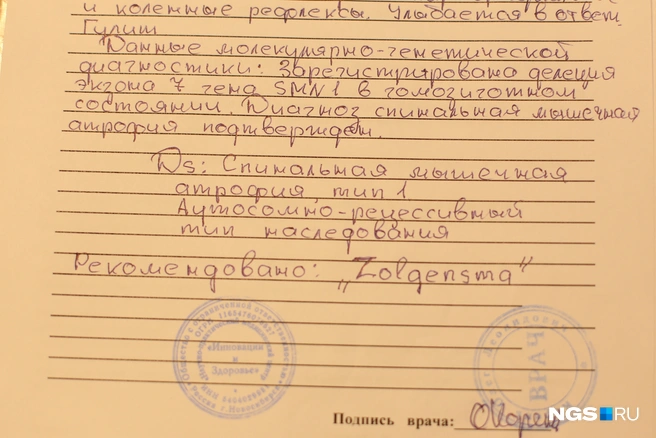 и коленные рефлексы. Улыбается в ответ.
Гулит
Данные молекулярно-генетической
диагностики: Зарегистрирована делеция
экзона 7 гена SMN1 в гомозиготном
состоянии. Диагноз спинальная мышечная
атрофия подтвержден.
Ds: Спинальная мышечная
атрофия, тип 1
Аутосомно-рецессивный
тип наследования
Рекомендовано: „Zolgensma"
Общество с ограниченной ответственностью
«Инновации
и
Здоровье»
Россия г.Новосибирск
ВРАЧ
Подпись врача:
NGS.RU